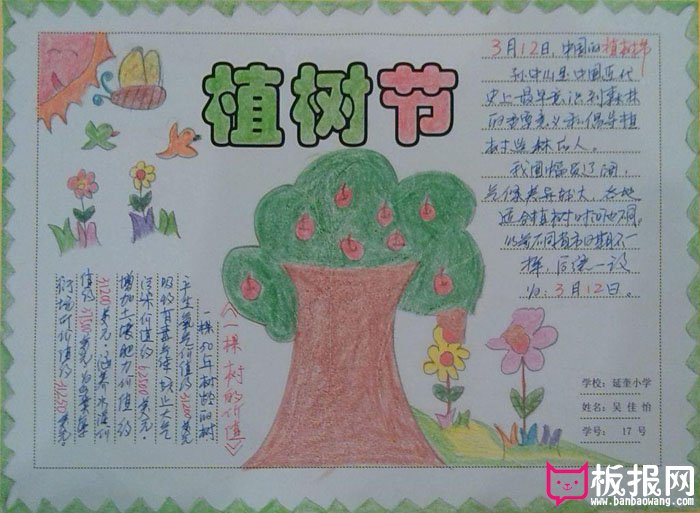 植树节
3月12日,中国的植树节
孙中山是中国近代
史上最早意识到森林
的重要意义和倡导植
树造林的人。
我国幅员辽阔,
气候差异较大,各地
适合植树时间也不同。
以前不同省市日期不一
样,后统一设
为3月12日。
《一棵树的价值》
一棵50年树龄的树
产生氧气价值约31200美元
吸收有毒气体防止大气
污染价值约62500美元,
增加土壤肥力价值约
31200美元,涵养水源价
值约37500美元
价值约31250美元。
学校:延奎小学
姓名:吴佳怡
学号: 17 号
板报网
www.banbaowang.com